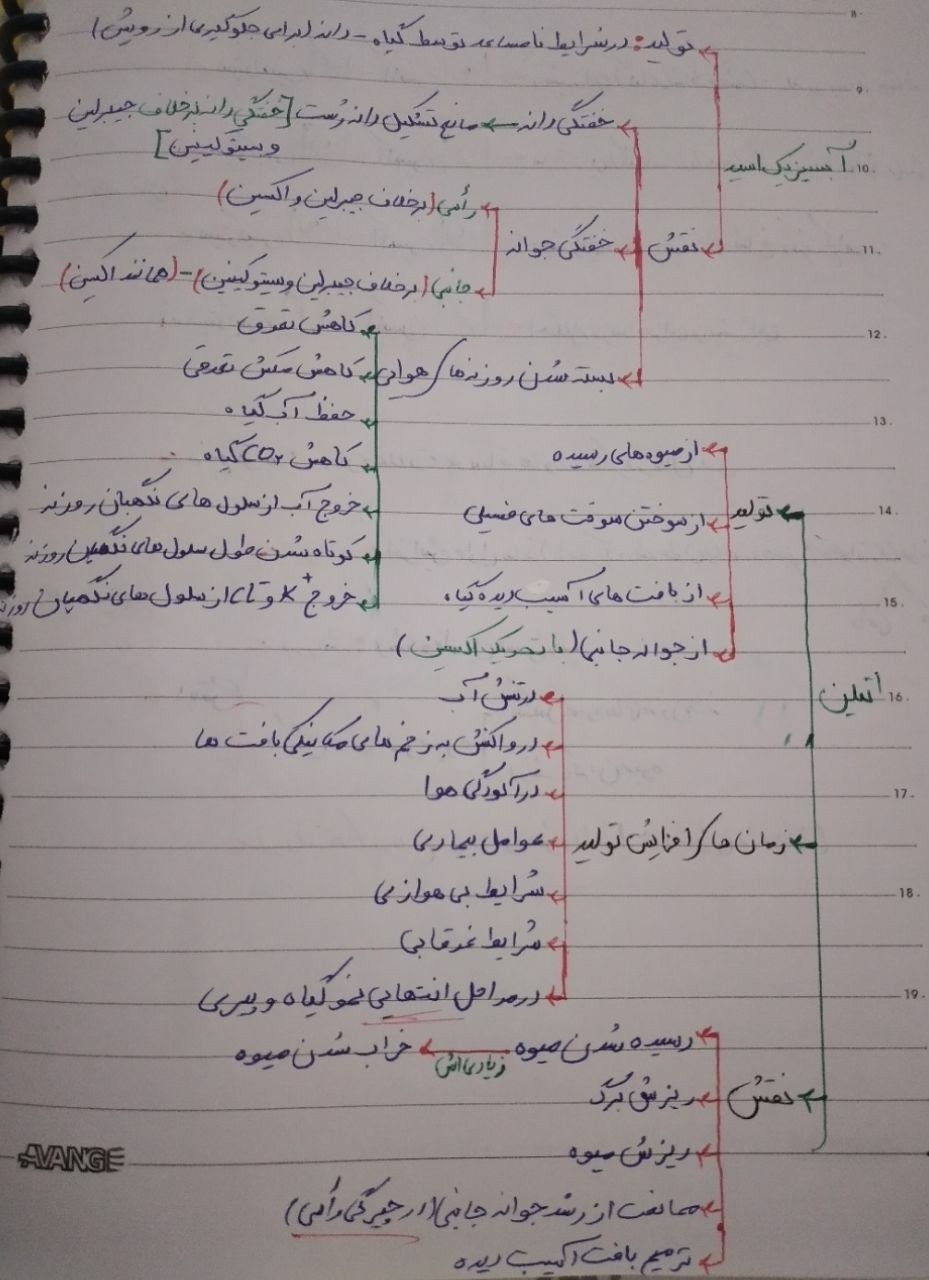 8.
تولید: در شرایط نامساعد توسط گیاه - دانه (برای جلوگیری از رویش)
9.
خفتگی دانه ← مانع تشکیل دانه رُست [خفتگی دانه برخلاف جیبرلین
و سیتوکینین]
آبسیزیک اسید
10.
رأسی (برخلاف جیبرلین و اکسین)
نقش
خفتگی جوانه
11.
جانبی (برخلاف جیبرلین و سیتوکینین) - (همانند اکسین)
12.
بسته شدن روزنه های هوایی
کاهش تعرق
کاهش مکش تعرقی
حفظ آب گیاه
13.
کاهش CO₂ گیاه
خروج آب از سلول های نگهبان روزنه
کوتاه شدن طول سلول های نگهبان روزنه
خروج K⁺ و Cl⁻ از سلول های نگهبان روزنه
اتیلن
تولید
14.
از میوه های رسیده
از سوختن سوخت های فسیلی
از بافت های آسیب دیده گیاه
15.
از جوانه جانبی (با تحریک اکسین)
16.
زمان های افزایش تولید
در تنش آب
در واکنش به زخم های مکانیکی بافت ها
در آلودگی هوا
17.
عوامل بیماری
شرایط بی هوازی
18.
شرایط غرقابی
در مراحل انتهایی نمو گیاه و پیری
19.
نقش
رسیده شدن میوه ← زیادی اش خراب شدن میوه
ریزش برگ
ریزش میوه
ممانعت از رشد جوانه جانبی (در چیرگی رأسی)
ترمیم بافت آسیب دیده
AVANGE